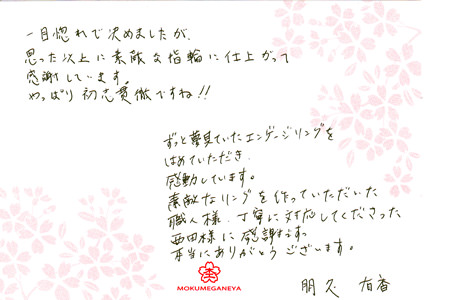 一目惚れで決めましたが、
思った以上に素敵な指輪に仕上がって
感謝しています。
やっぱり初志貫徹ですね!!
ずっと夢見ていたエンゲージリングを
はめていただき、
感動しています。
素敵なリングを作っていただいた
職人様、丁寧に対応してくださった
西田様に感謝します。
本当にありがとうございます。
MOKUMEGANEYA
朋久 有香